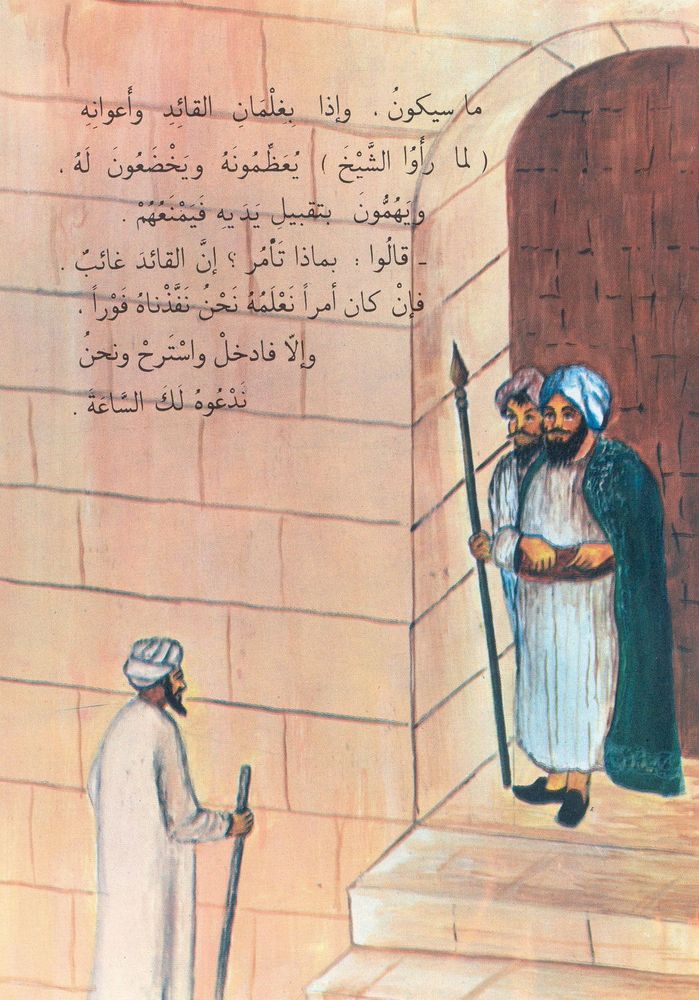 ما سيكونُ ، وإذا بِغِلْمَانِ القائِدِ وأَعوانِهِ
( لما رأَوُا الشَّيْخَ ) يُعَظِّمُونَهُ ويَخْضَعُونَ لَهُ ،
ويَهُمُّونَ بتقبيلِ يَدَيهِ فَيَمْنَعُهُمْ .
ـ قالُوا : بماذا تَأْمُر ؟ إنَّ القائدَ غائبٌ .
فإنْ كان أمراً نَعْلَمُهُ نَحْنُ نَفَّذْناهُ فَوْراً ،
وإلّا فادخلْ واسْتَرحْ ونحنُ
نَدْعُوهُ لَكَ السَّاعَةَ .